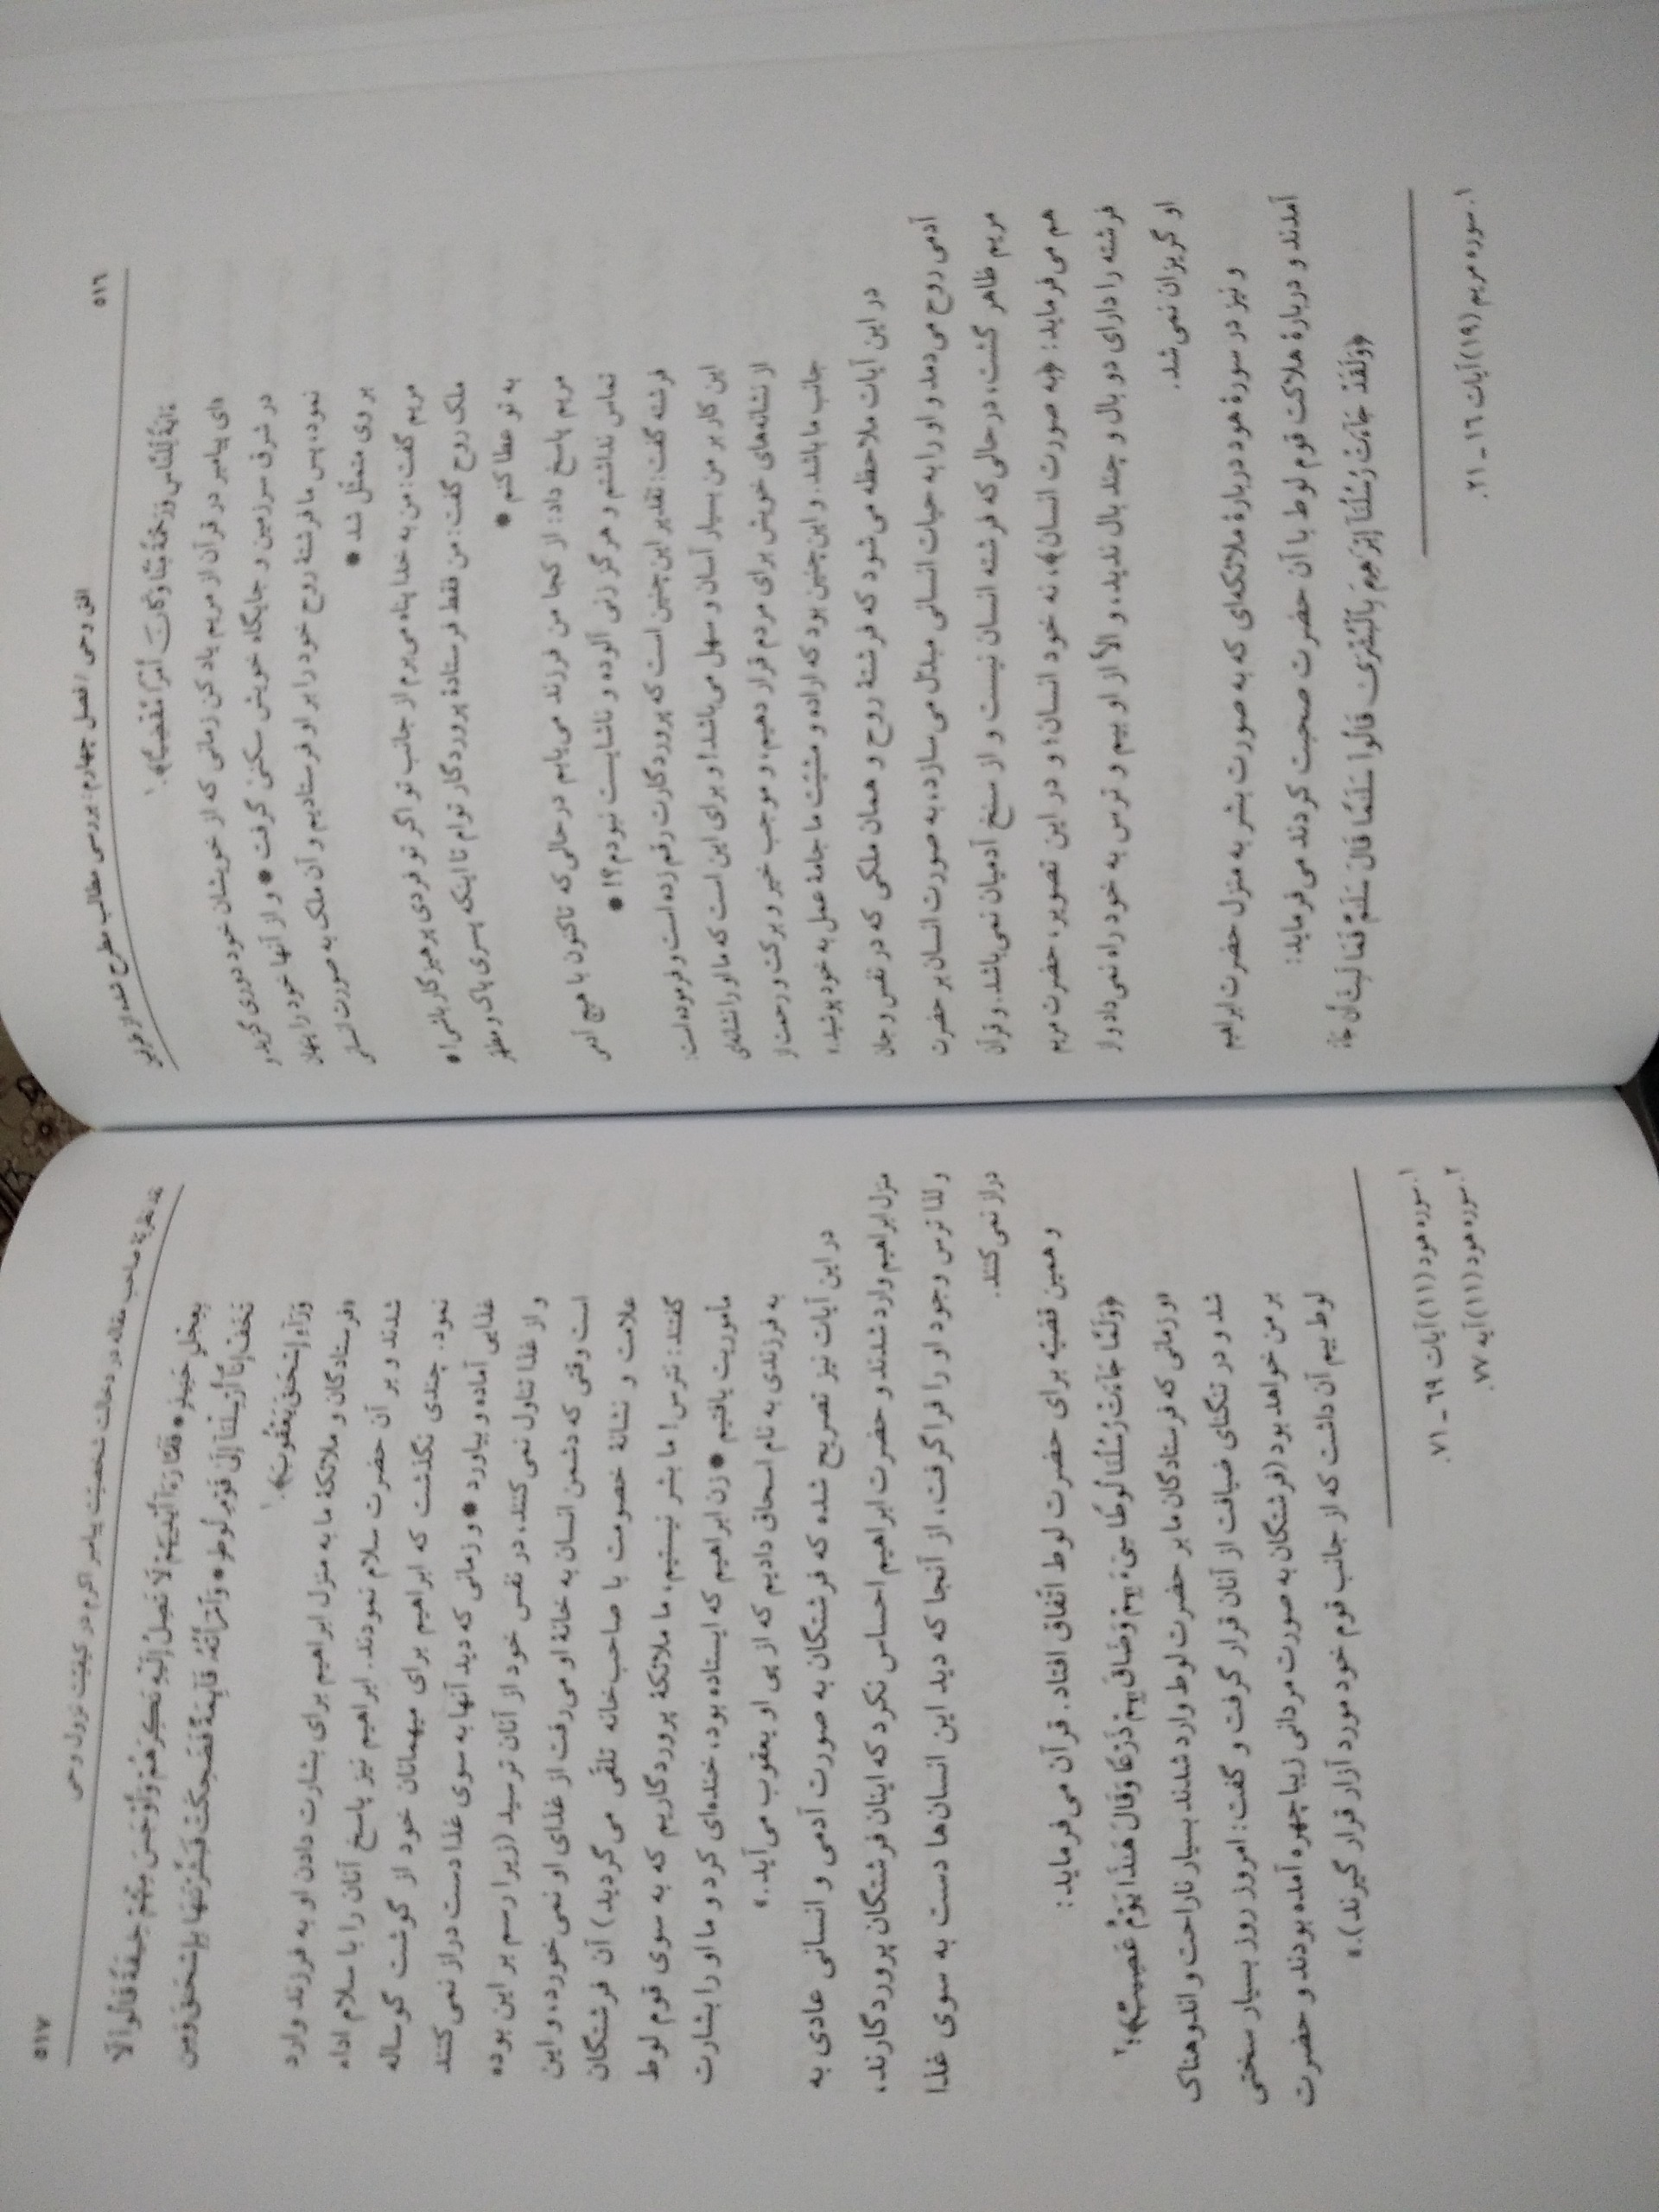 ۵۱۶
افق وحی / فصل چهارم: بررسی مطالب مطرح شده از طرف
ءَايَةً لِّلنَّاسِ وَرَحْمَةً مِّنَّا وَكَانَ أَمْرًا مَّقْضِيًّا﴾.۱
«ای پیامبر در قرآن از مریم یاد کن زمانی که از خویشان خود دوری گزید و
در شرق سرزمین و جایگاه خویش سکنی گرفت * و از آنها خود را پنهان
نمود، پس ما فرشتۀ روح خود را بر او فرستادیم و آن ملک به صورت انسانی
بر وی متمثّل شد *
مریم گفت: من به خدا پناه می‌برم از جانب تو اگر تو فردی پرهیزکار باشی! *
ملک روح گفت: من فقط فرستادۀ پروردگار توام تا اینکه پسری پاک و مطهّر
به تو عطا کنم *
مریم پاسخ داد: از کجا من فرزند می‌یابم در حالی که تاکنون با هیچ آدمی
تماس نداشتم و هرگز زنی آلوده و ناشایست نبودم؟! *
فرشته گفت: تقدیر این چنین است که پروردگارت رقم زده است و فرموده است:
این کار بر من بسیار آسان و سهل می‌باشد! و برای این است که ما او را نشانه‌ای
از نشانه‌های خویش برای مردم قرار دهیم، و موجب خیر و برکت و رحمت از
جانب ما باشد. و این چنین بود که اراده و مشیّت ما جامۀ عمل به خود پوشید.»
در این آیات ملاحظه می‌شود که فرشتۀ روح و همان ملکی که در نفس و جان
آدمی روح می‌دمد و او را به حیات انسانی مبدّل می‌سازد، به صورت انسان بر حضرت
مریم ظاهر گشت، در حالی که فرشته انسان نیست و از سنخ آدمیان نمی‌باشد. و قرآن
هم می‌فرماید: ﴿به صورت انسان﴾، نه خود انسان؛ و در این تصویر، حضرت مریم
فرشته را دارای دو بال و چند بال ندید، و الاّ از او بیم و ترس به خود راه نمی‌داد و از
او گریزان نمی‌شد.
و نیز در سورۀ هود دربارۀ ملائکه‌ای که به صورت بشر به منزل حضرت ابراهیم
آمدند و دربارۀ هلاکت قوم لوط با آن حضرت صحبت کردند می‌فرماید:
﴿وَلَقَدْ جَآءَتْ رُسُلُنَآ إِبْرَٰهِيمَ بِٱلْبُشْرَىٰ قَالُوا۟ سَلَـٰمًا قَالَ سَلَـٰمٌ فَمَا لَبِثَ أَن جَآءَ
۱. سوره مریم (۱۹) آیات ۱۶ ـ ۲۱.
۵۱۷
نقد نظریۀ صاحب مقاله در دخالت شخصیّت پیامبر اکرم در کیفیّت نزول وحی
بِعِجْلٍ حَنِيذٍ * فَلَمَّا رَءَآ أَيْدِيَهُمْ لَا تَصِلُ إِلَيْهِ نَكِرَهُمْ وَأَوْجَسَ مِنْهُمْ خِيفَةً قَالُوا۟ لَا
تَخَفْ إِنَّآ أُرْسِلْنَآ إِلَىٰ قَوْمِ لُوطٍ * وَٱمْرَأَتُهُۥ قَآئِمَةٌ فَضَحِكَتْ فَبَشَّرْنَـٰهَا بِإِسْحَـٰقَ وَمِن
وَرَآءِ إِسْحَـٰقَ يَعْقُوبَ﴾.۱
«فرستادگان و ملائکۀ ما به منزل ابراهیم برای بشارت دادن او به فرزند وارد
شدند و بر آن حضرت سلام نمودند. ابراهیم نیز پاسخ آنان را با سلام اداء
نمود. چندی نگذشت که ابراهیم برای میهمانان خود از گوشت گوساله
غذایی آماده و بیاورد * و زمانی که دید آنها به سوی غذا دست دراز نمی‌کنند
و از غذا تناول نمی‌کنند، در نفس خود از آنان ترسید (زیرا رسم بر این بوده
است وقتی که دشمن انسان به خانۀ او می‌رفت از غذای او نمی‌خورد، و این
علامت و نشانۀ خصومت با صاحب‌خانه تلقّی می‌گردید) آن فرشتگان
گفتند: نترس! ما بشر نیستیم، ما ملائکۀ پروردگاریم که به سوی قوم لوط
مأموریت یافتیم * زن ابراهیم که ایستاده بود، خنده‌ای کرد و ما او را بشارت
به فرزندی به نام اسحاق دادیم که از پی او یعقوب می‌آید.»
در این آیات نیز تصریح شده که فرشتگان به صورت آدمی و انسانی عادی به
منزل ابراهیم وارد شدند و حضرت ابراهیم احساس نکرد که اینان فرشتگان پروردگارند،
و لذا ترس وجود او را فرا گرفت، از آنجا که دید این انسان‌ها دست به سوی غذا
دراز نمی‌کنند.
و همین قضیّه برای حضرت لوط اتّفاق افتاد. قرآن می‌فرماید:
﴿وَلَمَّا جَآءَتْ رُسُلُنَا لُوطًا سِىٓءَ بِهِمْ وَضَاقَ بِهِمْ ذَرْعًا وَقَالَ هَـٰذَا يَوْمٌ عَصِيبٌ﴾؛۲
«و زمانی که فرستادگان ما بر حضرت لوط وارد شدند بسیار ناراحت و اندوهناک
شد و در تنگنای ضیافت از آنان قرار گرفت و گفت: امروز روز بسیار سختی
بر من خواهد بود (فرشتگان به صورت مردانی زیبا چهره آمده بودند و حضرت
لوط بیم آن داشت که از جانب قوم خود مورد آزار قرار گیرند).»
۱. سوره هود (۱۱) آیات ۶۹ ـ ۷۱.
۲. سوره هود (۱۱) آیه ۷۷.